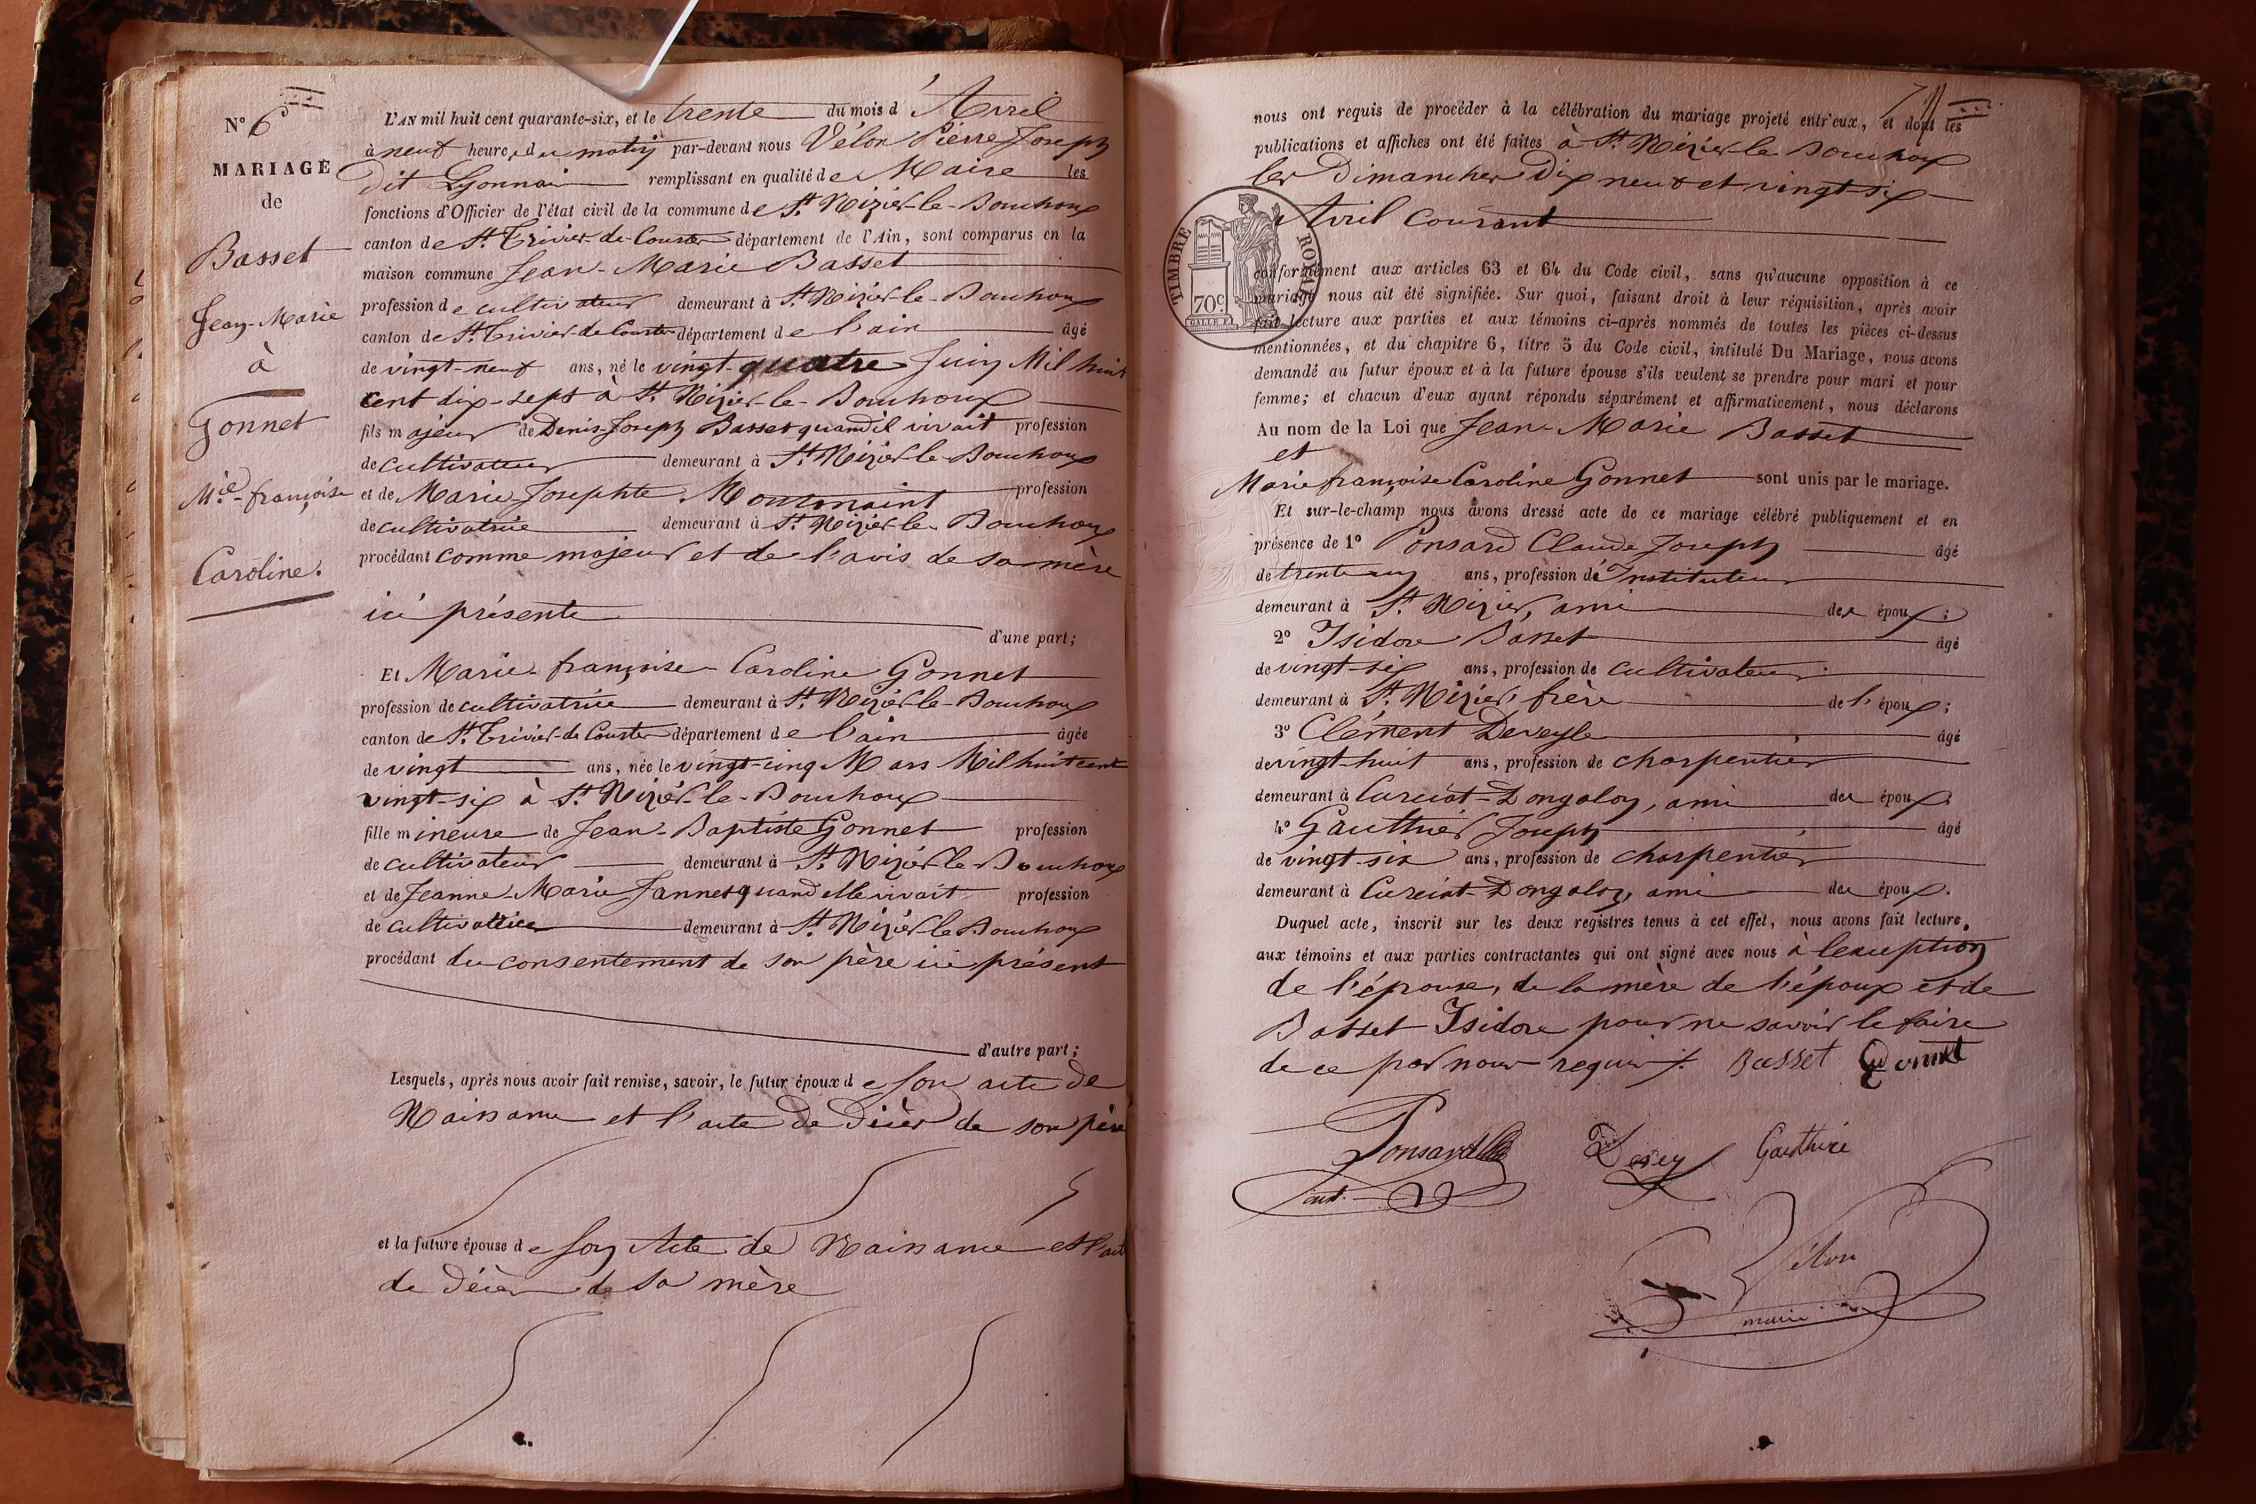 N° 6
MARIAGE
de
Basset
Jean-Marie
à
Gonnet
M.ie-françoise
Caroline.
L'AN mil huit cent quarante-six, et le trente du mois d'Avril
à neuf heures du matin par-devant nous Vélon Pierre Joseph
dit Lyonnais remplissant en qualité de Maire les
fonctions d'Officier de l'état civil de la commune de St. Nizier-le-Bouchoux
canton de St. Trivier-de-Courtes département de l'Ain, sont comparus en la
maison commune Jean-Marie Basset
profession de cultivateur demeurant à St. Nizier-le-Bouchoux
canton de St. Trivier de Courtes département de l'ain âgé
de vingt-neuf ans, né le vingt-quatre Juin Mil huit
cent dix-sept à St. Nizier-le-Bouchoux
fils majeur de Denis-Joseph Basset quand il vivait profession
de cultivateur demeurant à St. Nizier-le-Bouchoux
et de Marie Josephte Montmaint profession
de cultivatrice demeurant à St. Nizier-le-Bouchoux
procédant comme majeur et de l'avis de sa mère
ici présente
d'une part;
Et Marie-françoise-Caroline Gonnet
profession de cultivatrice demeurant à St. Nizier-le-Bouchoux
canton de St. Trivier-de Courtes département de l'ain âgée
de vingt ans, née le vingt-cinq Mars Mil huit cent
vingt-six à St. Nizier-le-Bouchoux
fille mineure de Jean-Baptiste Gonnet profession
de cultivateur demeurant à St. Nizier-le-Bouchoux
et de Jeanne Marie Jannet quand elle vivait profession
de cultivatrice demeurant à St. Nizier-le-Bouchoux
procédant du consentement de son père ici présent
d'autre part;
Lesquels, après nous avoir fait remise, savoir, le futur époux de son acte de
Naissance et l'acte de décès de son père
et la future épouse de son Acte de Naissance et l'acte
de décès de sa mère
nous ont requis de procéder à la célébration du mariage projeté entr'eux, et dont les
publications et affiches ont été faites à St. Nizier-le Bouchoux
les Dimanches Dix neuf et vingt-six
Avril courant
TIMBRE ROYAL
70c.
conformément aux articles 63 et 64 du Code civil, sans qu'aucune opposition à ce
mariage nous ait été signifiée. Sur quoi, faisant droit à leur réquisition, après avoir
fait lecture aux parties et aux témoins ci-après nommés de toutes les pièces ci-dessus
mentionnées, et du chapitre 6, titre 5 du Code civil, intitulé Du Mariage, nous avons
demandé au futur époux et à la future épouse s'ils veulent se prendre pour mari et pour
femme; et chacun d'eux ayant répondu séparément et affirmativement, nous déclarons
Au nom de la Loi que Jean-Marie Basset
et
Marie françoise Caroline Gonnet sont unis par le mariage.
Et sur-le-champ nous avons dressé acte de ce mariage célébré publiquement et en
présence de 1° Ponsard Claude Joseph âgé
de trente ans, profession d'Instituteur
demeurant à St. Nizier, ami des époux;
2° Isidore Basset âgé
de vingt-six ans, profession de cultivateur
demeurant à St. Nizier, frère de l'époux;
3° Clément Deveyle âgé
de vingt-huit ans, profession de charpentier
demeurant à Curciat-Dongalon, ami des époux;
4° Gauthier Joseph âgé
de vingt-six ans, profession de charpentier
demeurant à Curciat-Dongalon, ami des époux.
Duquel acte, inscrit sur les deux registres tenus à cet effet, nous avons fait lecture
aux témoins et aux parties contractantes qui ont signé avec nous à l'exception
de l'épouse, de la mère de l'époux et de
Basset Isidore pour ne savoir le faire
de ce par nous requis. Basset Gonnet
Ponsard Devey Gauthier
Vélon
maire